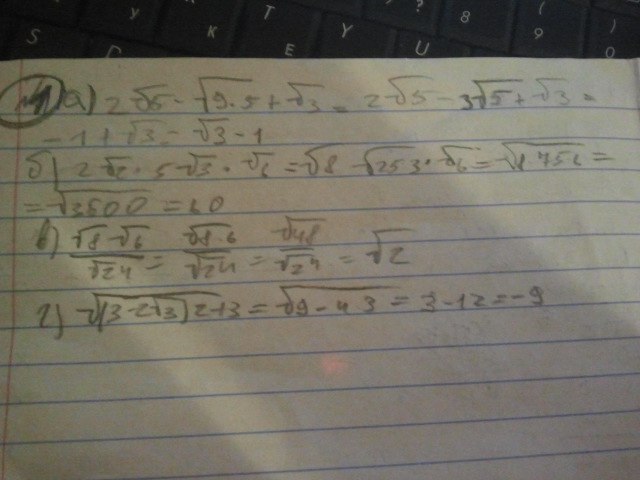 T
?
8
(
Y
S
K
E
Y
U
9
)
0
№1 а) 2√5 - √9·5 + √3 = 2√5 - 3√5 + √3 =
- 1 + √3 = √3 - 1
б) 2√2 · 5√3 · √6 = √8 · √25 3 · √6 = √8 75 6 =
= √3600 = 60
в) √8·√6/√24 = √8·6/√24 = √48/√24 = √2
г) √(3-2√3)2+3 = √9-4 3 = 3-12 = -9